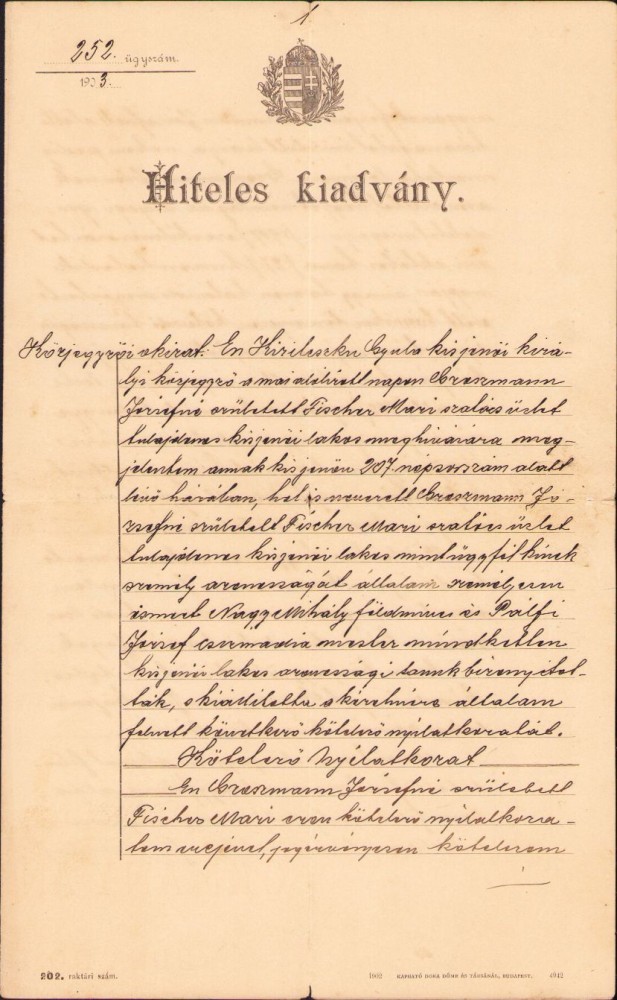 1.
252. ügyszám.
1903.
Hiteles kiadvány.
Közjegyzői okirat: Én Kirileszku Gyula kisjenői kirá-
lyi közjegyző a mai alólirott napon
Józsefné született Fischer Mari szatócs üzlet
tulajdonos kisjenői lakos meghivására meg-
jelentem annak kisjenőn 207 népsorszám alatt
lévő házában, hol is nevezett Jó-
zsefné született Fischer Mari szatócs üzlet
tulajdonos kisjenői lakos mint ügyfél kinek
személy azonosságát általam személyesen
ismert Nagy Mihály földmives és Pálfi
József csizmadia mester mindketten
kisjenői lakos azonossági tanuk bizonyitot-
ták, s kiáditotta s kérelmére általam
felvett következő kötelező nyilatkozatát.
Kötelező Nyilatkozat
Én Józsefné született
Fischer Mari ezen kötelező nyilatkoza-
tom erejével, jogérvényesen kötelezem
202. raktári szám.
1902 KAPHATÓ
ÉS TÁRSÁNÁL, BUDAPEST. 4942